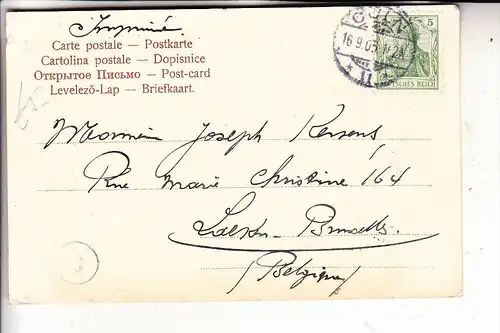 Imprimé
Carte postale — Postkarte
Cartolina postale — Dopisnice
Открытое Письмо — Post-card
Levelező-Lap — Briefkaart.
CÖLN
16.9.03
11
5
DEUTSCHES REICH
Monsieur Joseph Kersens
Rue Marie Christine 164
Laeken-Bruxelles
(Belgique)